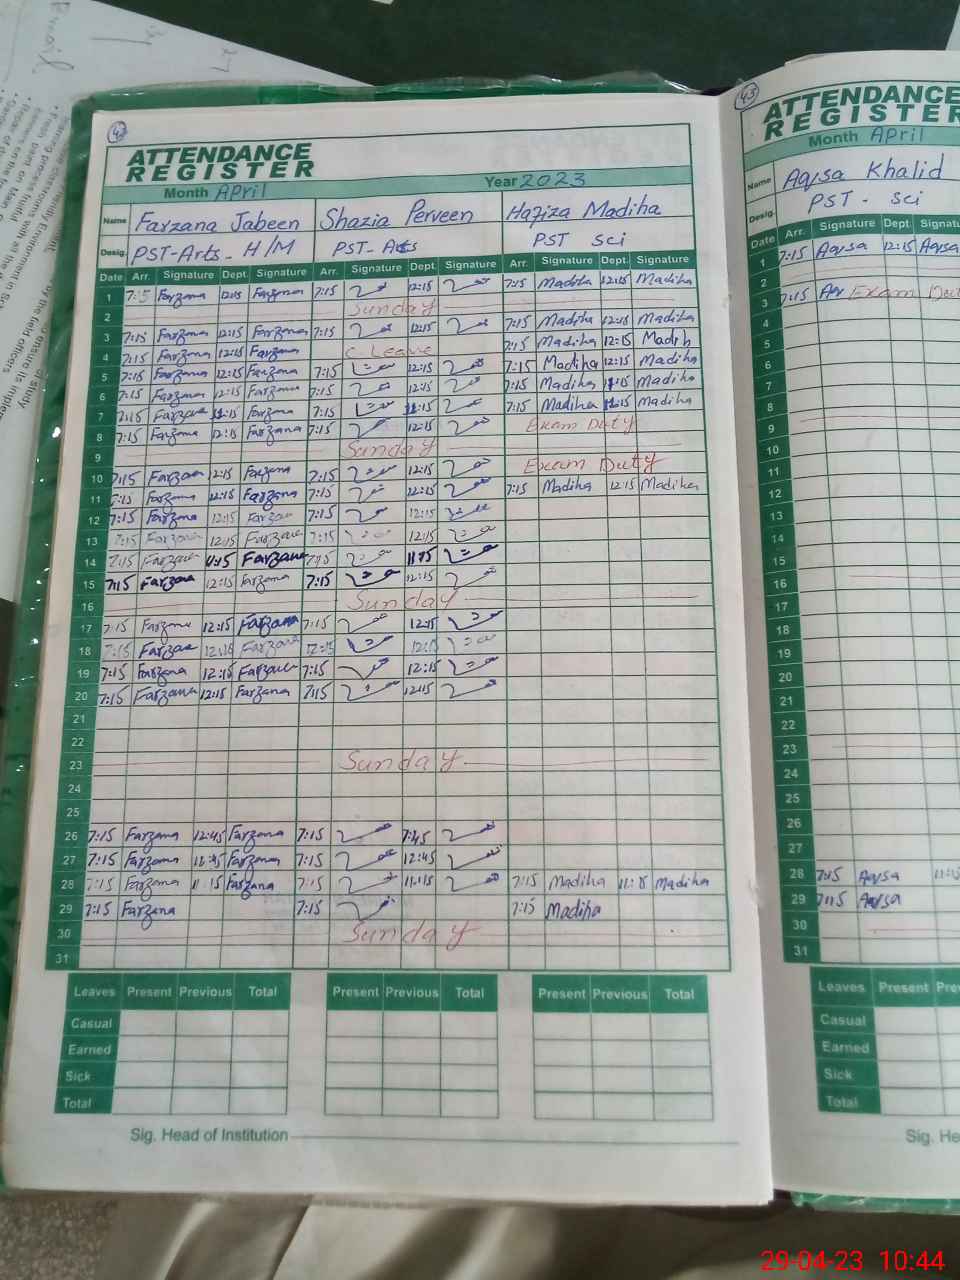 42
ATTENDANCE
REGISTER
Month April Year 2023
Name Farzana Jabeen Shazia Perveen Hafiza Madiha
Desig. PST-Arts H/M PST-Arts PST Sci
Date Arr. Signature Dept. Signature Arr. Signature Dept. Signature Arr. Signature Dept. Signature
1 7:15 Farzana 12:15 Farzana 7:15 12:15 7:15 Madiha 12:15 Madiha
2 Sunday
3 7:15 Farzana 12:15 Farzana 7:15 12:15 7:15 Madiha 12:15 Madiha
4 7:15 Farzana 12:15 Farzana C Leave 7:15 Madiha 12:15 Madih
5 7:15 Farzana 12:15 Farzana 7:15 12:15 7:15 Madiha 12:15 Madiha
6 7:15 Farzana 12:15 Farzana 7:15 12:15 7:15 Madiha 11:15 Madiha
7 7:15 Farzana 11:15 Farzana 7:15 11:15 7:15 Madiha 11:15 Madiha
8 7:15 Farzana 12:15 Farzana 7:15 12:15 Exam Duty
9 Sunday
10 7:15 Farzana 12:15 Farzana 7:15 12:15 Exam Duty
11 7:15 Farzana 12:15 Farzana 7:15 12:15 7:15 Madiha 12:15 Madiha
12 7:15 Farzana 12:15 Farzana 7:15 12:15
13 7:15 Farzana 12:15 Farzana 7:15 12:15
14 7:15 Farzana 11:15 Farzana 7:15 11:15
15 7:15 Farzana 12:15 Farzana 7:15 12:15
16 Sunday
17 7:15 Farzana 12:15 Farzana 7:15 12:15
18 7:15 Farzana 12:15 Farzana 12:15 12:15
19 7:15 Farzana 12:15 Farzana 7:15 12:15
20 7:15 Farzana 12:15 Farzana 7:15 12:15
21
22
23 Sunday
24
25
26 7:15 Farzana 12:45 Farzana 7:15 7:45
27 7:15 Farzana 12:45 Farzana 7:15 12:45
28 7:15 Farzana 11:15 Farzana 7:15 11:15 7:15 Madiha 11:15 Madiha
29 7:15 Farzana 7:15 7:15 Madiha
30 Sunday
31
Leaves Present Previous Total Present Previous Total Present Previous Total
Casual
Earned
Sick
Total
Sig. Head of Institution
43
ATTENDANCE
REGISTER
Month April
Name Aqsa Khalid
Desig. PST - Sci
Date Arr. Signature Dept. Signatu
1 7:15 Aqsa 12:15 Aqsa
2
3 7:15 Exam Dut
4
5
6
7
8
9
10
11
12
13
14
15
16
17
18
19
20
21
22
23
24
25
26
27
28 7:15 Aqsa 11:15
29 7:15 Aqsa
30
31
Leaves Present Pre
Casual
Earned
Sick
Total
Sig. He
29-04-23 10:44